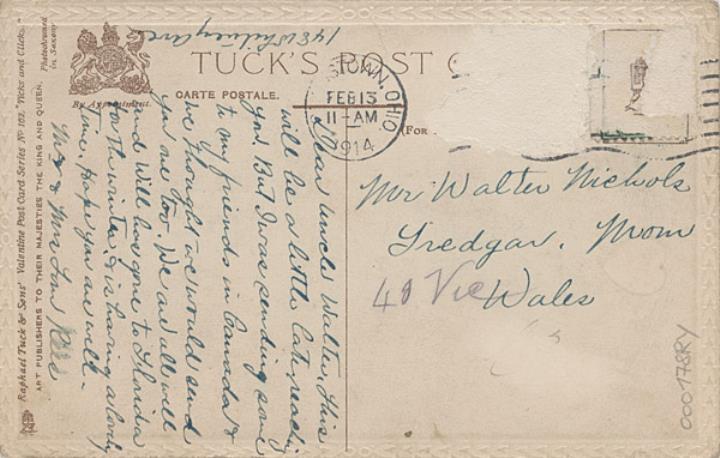 148 Whitney Ave
TUCK'S POST C
CARTE POSTALE.
By Appointment.
(For
TOWN, OHIO
FEB 13
11-AM
1914
Raphael Tuck & Sons' Valentine Post Card Series Nº 102. "Picks and Clicks."
Photochromed
in Saxony
ART PUBLISHERS TO THEIR MAJESTIES THE KING AND QUEEN.
Dear uncle Walter, This
will be a little late reaching
you. But I was sending some
to my friends in Canada &
we thought we would send
you one too. We are all well
and Will has gone to Florida
for the winter & is having a lovely
time. Hope you are well.
Mr & Mrs Tom Rees
Mr Walter Nichols
Tredgar. Mom
Wales
40 Vic
000178RY